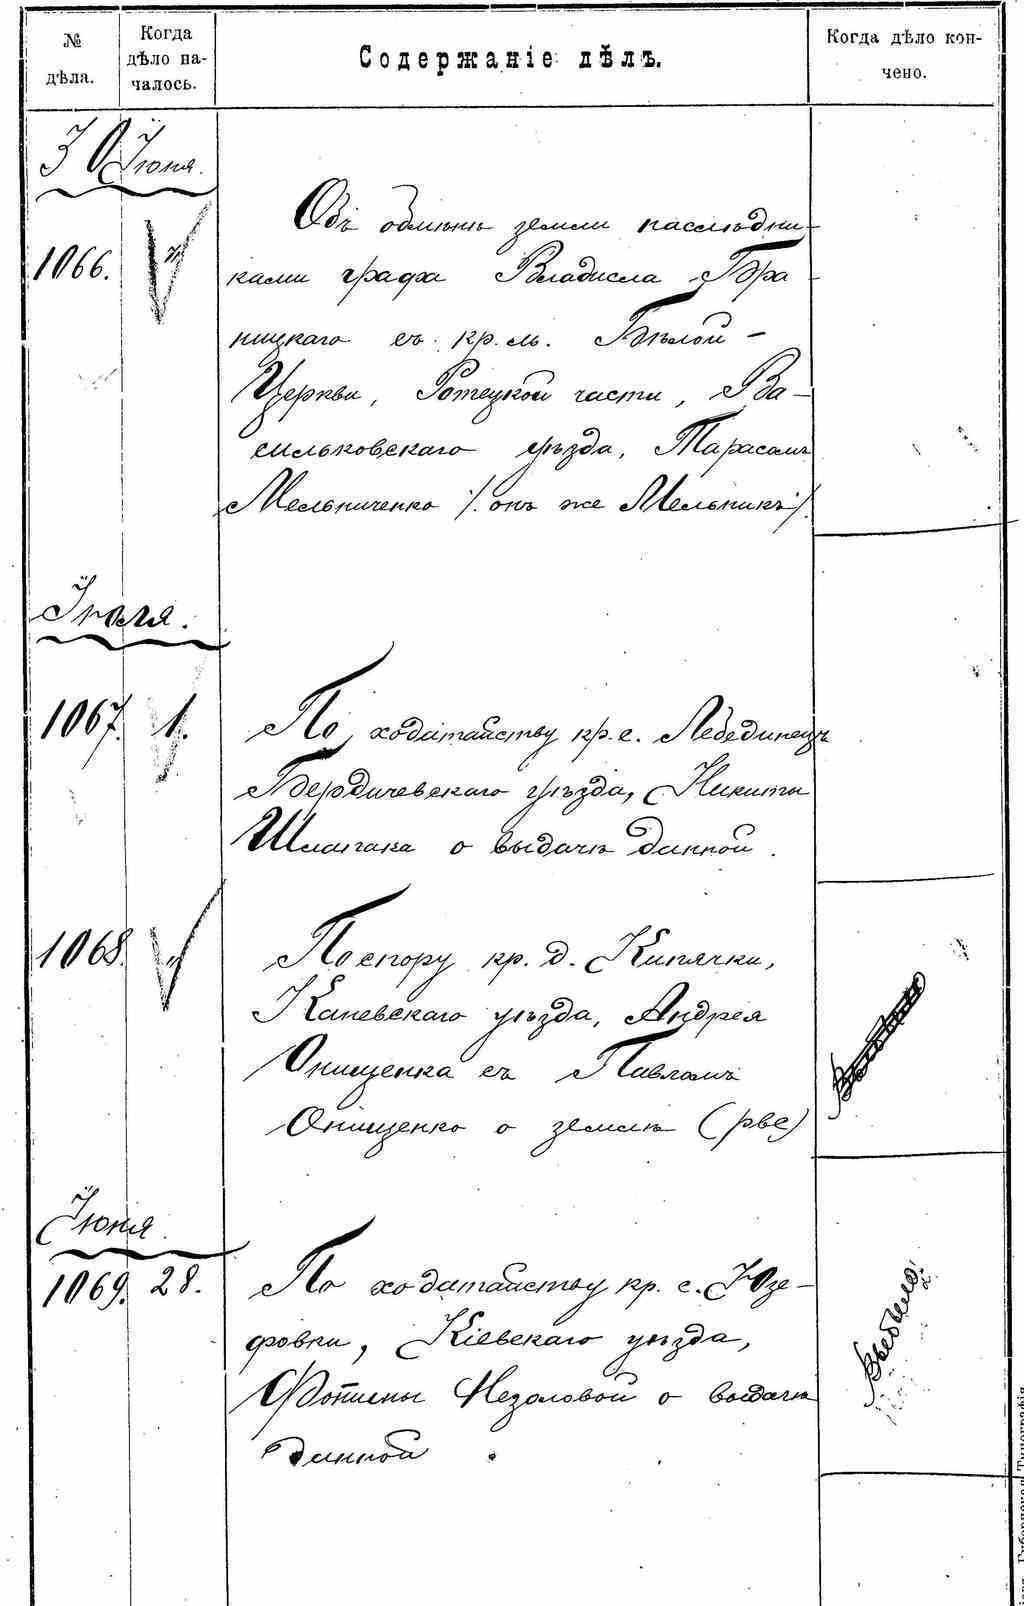 № дѣла.
Когда дѣло началось.
Содержаніе дѣлъ.
Когда дѣло кончено.
30 Іюня.
1066. "
Объ обмѣнѣ земли наслѣдни-
ками графа Владисла Бра-
ницкаго съ кр. м. Бѣлой-
Церкви, Ротецкой части, Ва-
сильковскаго уѣзда, Тарасомъ
Мельниченко /. онъ же Мельникъ ./
Іюля.
1067. 1.
По ходатайству кр. с. Лебединецъ
Бердичевскаго уѣзда, Никиты
Шлапака о выдачѣ данной.
1068. "
По спору кр. д. Кипячки,
Каневскаго уѣзда, Андрея
Онищенка съ Павломъ
Онищенко о землѣ (рве)
Іюня.
1069. 28.
По ходатайству кр. с. Юзе-
фовки, Кіевскаго уѣзда,
Фотины Незоловой о выдачѣ
данной.
Выбыло.
Губернская Типографія